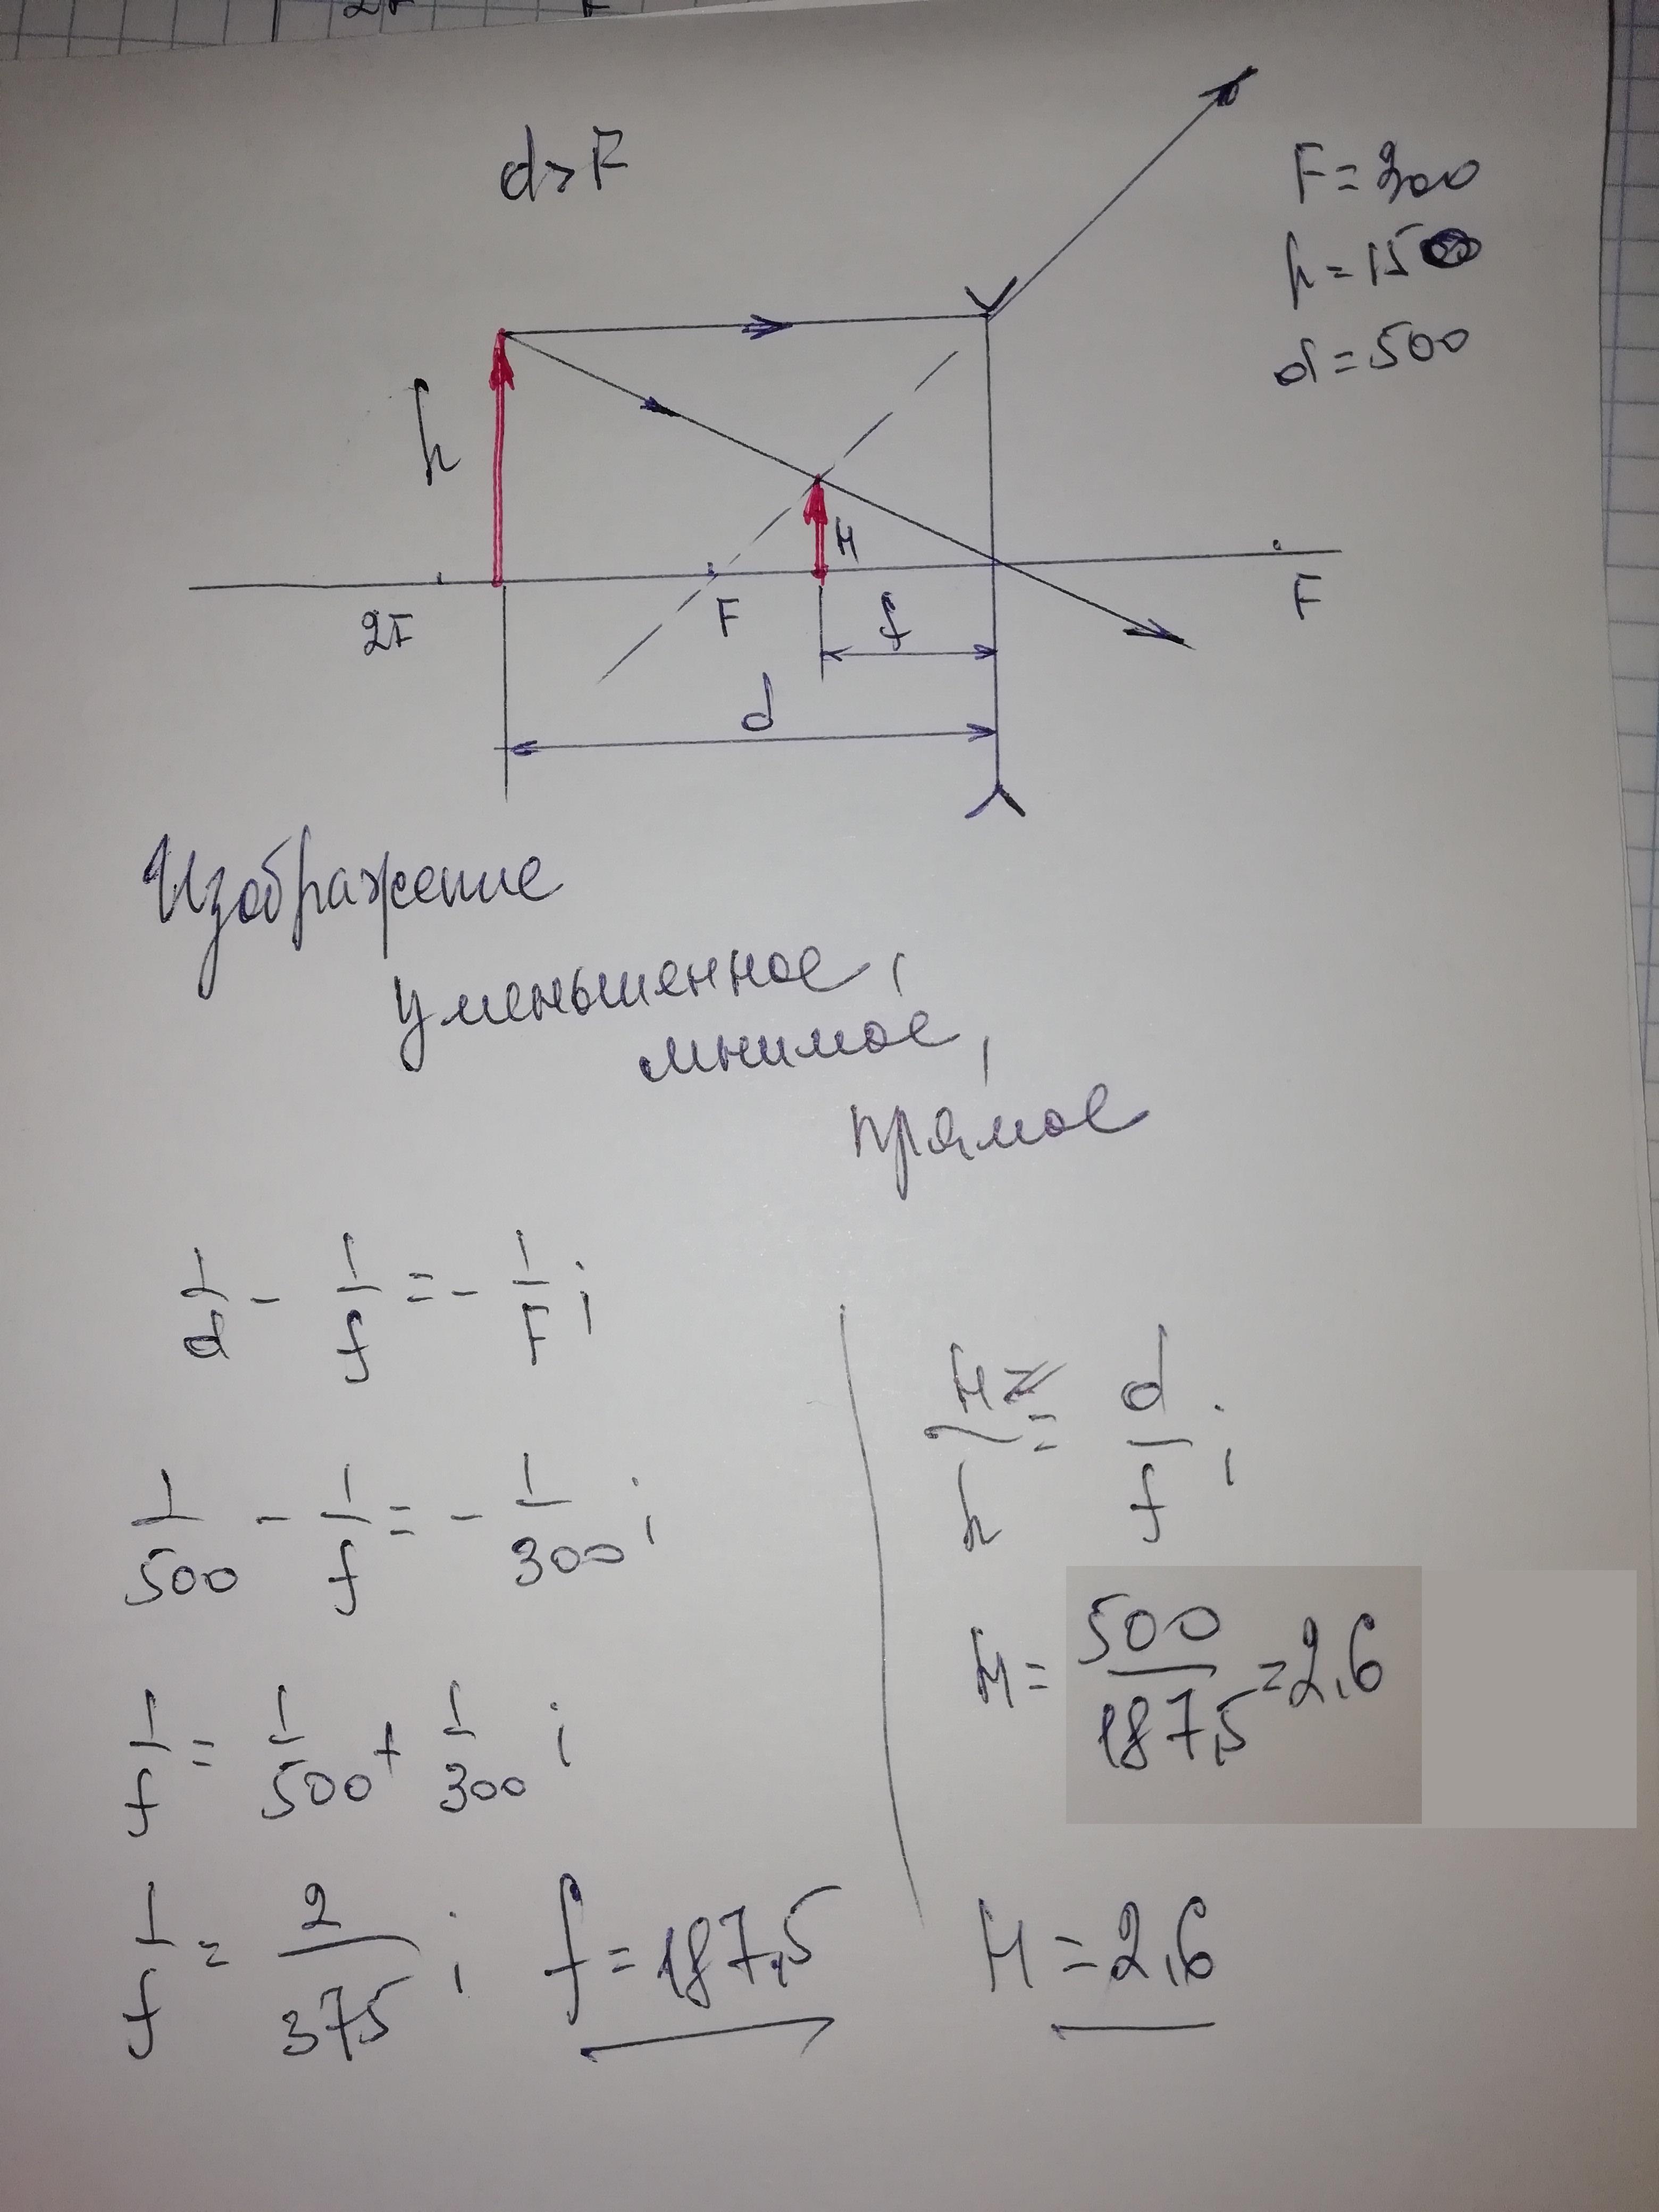 d>F
F=300
h=150
d=500
h
H
2F
F
f
F
d
Изображение
уменьшенное,
мнимое,
прямое
1/d - 1/f = - 1/F ;
1/500 - 1/f = - 1/300 ;
1/f = 1/500 + 1/300 ;
1/f = 2/375 ; f = 187,5
H/h = d/f ;
H = 500/187,5 = 2,6
H = 2,6